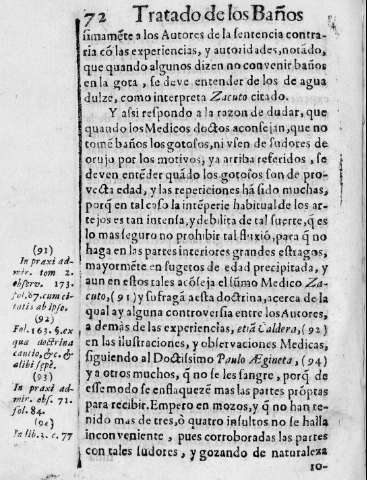 72 Tratado de los Baños
simamẽte a los Autores de la sentencia contra-
ria cõ las experiencias, y autoridades, notãdo,
que quando algunos dizen no convenir baños
en la gota, se deve entender de los de agua
dulze, como interpreta Zacuto citado.
Y assi respondo a la razon de dudar, que
quando los Medicos doctos aconsejan, que no
tomẽ baños los gotosos, ni vsen de sudores de
orujo por los motivos, ya arriba referidos, se
deven entẽder quãdo los gotosos son de pro-
vecta edad, y las repeticiones hã sido muchas,
porq̃ en tal caso la intẽperie habitual de los ar-
tejos es tan intensa, y debilita de tal suerte, q̃ es
lo mas seguro no prohibir tal fluxiõ, para q̃ no
haga en las partes interiores grandes estragos,
mayormẽte en sugetos de edad precipitada, y
aun en estos tales acõseja el sũmo Medico Za-
cuto, (91) y sufragã a esta doctrina, acerca de la
qual ay alguna controversia entre los Autores,
a demàs de las experiencias, etiã Caldera, (92)
en las ilustraciones, y observaciones Medicas,
siguiendo al Doctissimo Paulo Ægineta, (94)
y a otros muchos, q̃ no se les sangre, porq̃ de
esse modo se enflaquezẽ mas las partes prõptas
para recibir. Empero en mozos, y q̃ no han te-
nido mas de tres, ò quatro insultos no se halla
inconveniente, pues corroboradas las partes
con tales sudores, y gozando de naturaleza
10-
(91)
In praxi ad-
mir. tom 2.
observ. 173.
fol. 67. cum ci-
tatis ab ipso.
(92)
Fol. 163. §. ex
qua doctrina
cautio, &c. &
alibi sepè.
(93)
In praxi ad
mir. obs. 71.
fol. 84.
(94)
In lib. 3. c. 77